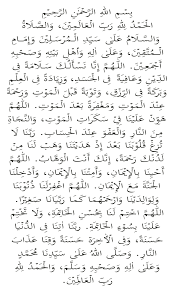 بِسْمِ اللهِ الرَّحْمٰنِ الرَّحِيْمِ
اَلْحَمْدُ لِلّٰهِ رَبِّ الْعَالَمِيْنَ، وَالصَّلَاةُ
وَالسَّلَامُ عَلَى سَيِّدِ الْمُرْسَلِيْنَ وَإِمَامِ
الْمُتَّقِيْنَ، وَعَلَى آلِهِ وَأَهْلِ بَيْتِهِ وَصَحْبِهِ
أَجْمَعِيْنَ. اَللّٰهُمَّ إِنَّا نَسْأَلُكَ سَلَامَةً فِي
الدِّيْنِ وَعَافِيَةً فِي الْجَسَدِ، وَزِيَادَةً فِي الْعِلْمِ
وَبَرَكَةً فِي الرِّزْقِ، وَتَوْبَةً قَبْلَ الْمَوْتِ وَرَحْمَةً
عِنْدَ الْمَوْتِ، وَمَغْفِرَةً بَعْدَ الْمَوْتِ. اَللّٰهُمَّ
هَوِّنْ عَلَيْنَا فِيْ سَكَرَاتِ الْمَوْتِ، وَالنَّجَاةَ
مِنَ النَّارِ وَالْعَفْوَ عِنْدَ الْحِسَابِ. رَبَّنَا لَا
تُزِغْ قُلُوْبَنَا بَعْدَ إِذْ هَدَيْتَنَا وَهَبْ لَنَا مِنْ
لَدُنْكَ رَحْمَةً، إِنَّكَ أَنْتَ الْوَهَّابُ. اَللّٰهُمَّ
أَحْيِنَا بِالْإِيْمَانِ، وَأَمِتْنَا بِالْإِيْمَانِ، وَأَدْخِلْنَا
الْجَنَّةَ مَعَ الْإِيْمَانِ. اَللّٰهُمَّ اغْفِرْلَنَا ذُنُوْبَنَا
وَلِوَالِدَيْنَا وَارْحَمْهُمَا كَمَا رَبَّيَانَا صِغَارًا.
اَللّٰهُمَّ اخْتِمْ لَنَا بِحُسْنِ الْخَاتِمَةِ، وَلَا تَخْتِمْ
عَلَيْنَا بِسُوْءِ الْخَاتِمَةِ. رَبَّنَا آتِنَا فِي الدُّنْيَا
حَسَنَةً، وَفِي الْآخِرَةِ حَسَنَةً وَقِنَا عَذَابَ
النَّارِ. وَصَلَّى اللهُ عَلَى سَيِّدِنَا مُحَمَّدٍ
وَعَلَى آلِهِ وَصَحْبِهِ وَسَلَّمَ، وَالْحَمْدُ لِلّٰهِ
رَبِّ الْعَالَمِيْنَ.